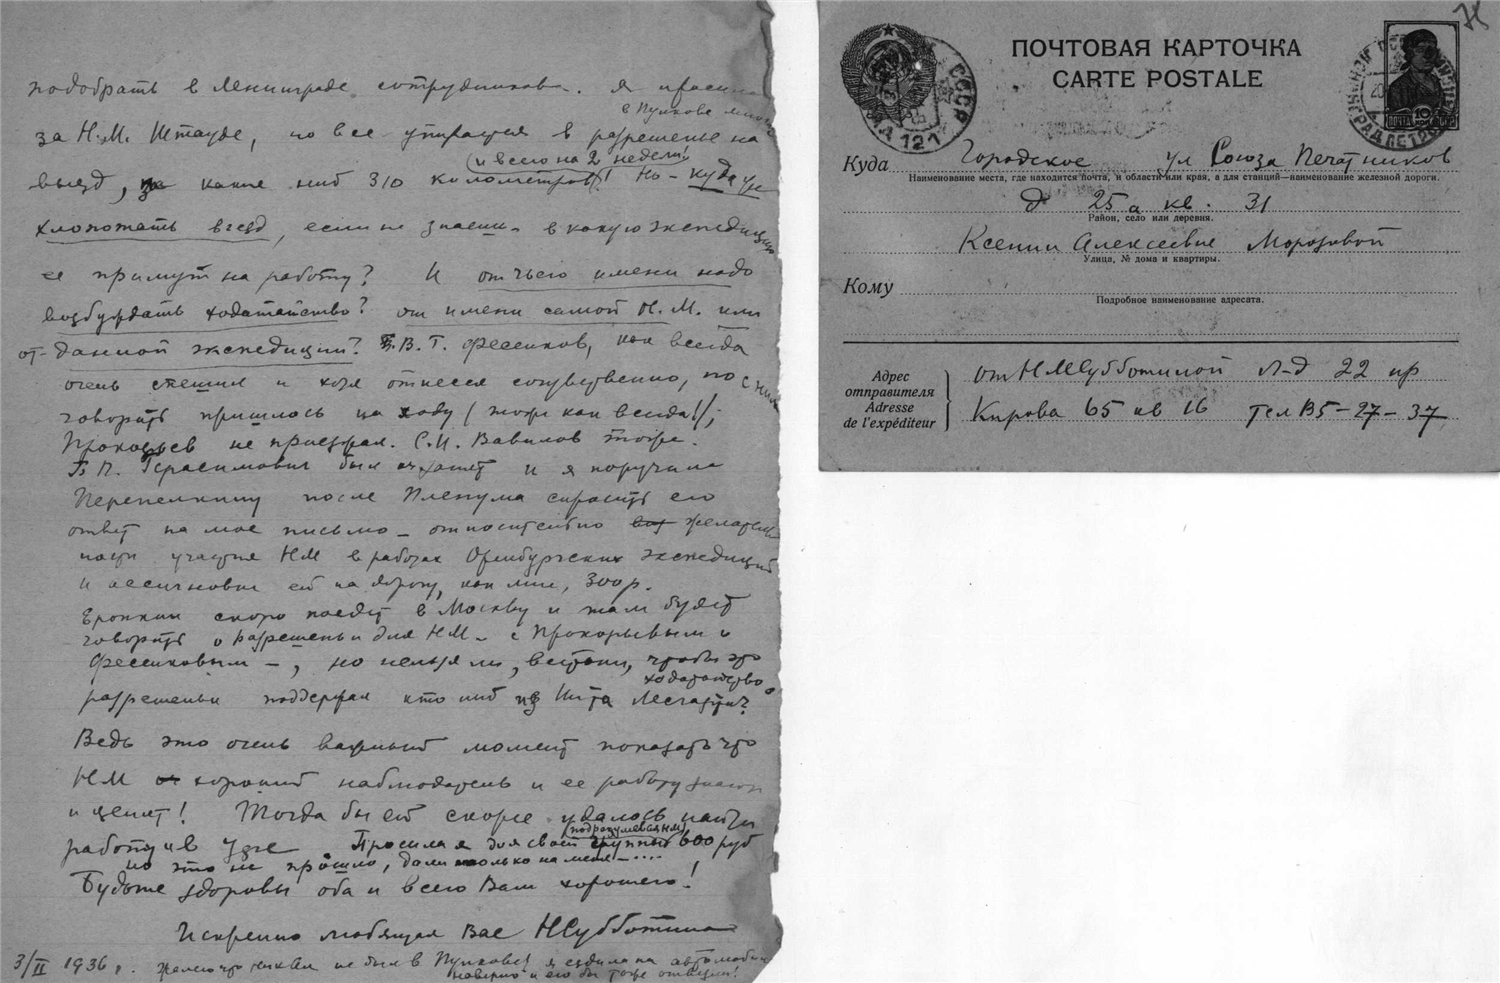 подобрать в Ленинграде сотрудников. Я просила
в Пулкове много
за Н.М. Штауде, но все упирается в разрешенье на
и всего на 2 недели!
выезд, на какие ниб 310 километров! Но - куда уж
хлопотать въезд, если не знаешь в какую экспедицию
ее примут на работу? И от чьего имени надо
возбуждать ходатайство? от имени самой Н.М. или
от данной экспедиции? В.Г. Фесенков, как всегда
очень спешил и хотя отнесся сочувственно, но с ним
говорить пришлось на ходу (тоже как всегда!);
Прокофьев не приезжал. С.И. Вавилов тоже.
Б П. Герасимович был и я поручила
Перепелкину после Пленума спросить его
ответ на мое письмо - относительно желатель
ности участия НМ в работах Оренбургских экспедиций
и ассигновки ей на дорогу, как мне, 300 р.
Еропкин скоро поедет в Москву и там будет
говорить о разрешеньи для НМ - с Прокофьевым и
Фесенковым -, но нельзя ли, чтобы это
ходатайство о
разрешеньи поддержал кто ниб из Инта Лесгафта?
Ведь это очень важный момент показать что
НМ хороший наблюдатель и ее работу знают
и ценят! Тогда бы ей скорее удалось найти
работу и в Уфе Просила я для своей группы 600 руб
(подразумевая НМ)
но это не прошло, дали только на меня - ....
Будьте здоровы оба и всего Вам хорошего!
Искренно любящая Вас НСубботина
3/II 1936 г. Жалею что не был в Пулкове! Я ездила на автомобиле
наверно и его бы тоже отвезли!
ПОЧТОВАЯ КАРТОЧКА
CARTE POSTALE
СССР
ПОЧТА 10
Куда Городское ул Союза Печатников
Наименование места, где находится почта, и области или края, а для станций—наименование железной дороги.
д 25а кв. 31
Район, село или деревня.
Ксении Алексеевне Морозовой
Улица, № дома и квартиры.
Кому
Подробное наименование адресата.
Адрес
отправителя
Adresse
de l'expéditeur
от НМСубботиной Л-д 22 пр
Кирова 65 кв 16 тел В5-27-37